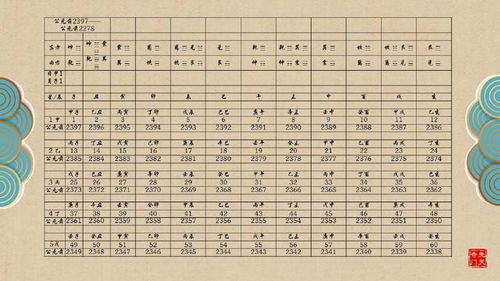 公元前2397——
公元前2278
东方
西方
日甲1
月子1
星/辰 子 丑 寅 卯 辰 巳 午 未 申 酉 戌 亥
甲子 乙丑 丙寅 丁卯 戊辰 己巳 庚午 辛未 壬申 癸酉 甲戌 乙亥
1甲 1 2 3 4 5 6 7 8 9 10 11 12
公元前 2397 2396 2395 2394 2393 2392 2391 2390 2389 2388 2387 2386
丙子 丁丑 戊寅 己卯 庚辰 辛巳 壬午 癸未 甲申 乙酉 丙戌 丁亥
2乙 13 14 15 16 17 18 19 20 21 22 23 24
公元前 2385 2384 2383 2382 2381 2380 2379 2378 2377 2376 2375 2374
戊子 己丑 庚寅 辛卯 壬辰 癸巳 甲午 乙未 丙申 丁酉 戊戌 己亥
3丙 25 26 27 28 29 30 31 32 33 34 35 36
公元前 2373 2372 2371 2370 2369 2368 2367 2366 2365 2364 2363 2362
庚子 辛丑 壬寅 癸卯 甲辰 乙巳 丙午 丁未 戊申 己酉 庚戌 辛亥
4丁 37 38 39 40 41 42 43 44 45 46 47 48
公元前 2361 2360 2359 2358 2357 2356 2355 2354 2353 2352 2351 2350
壬子 癸丑 甲寅 乙卯 丙辰 丁巳 戊午 己未 庚申 辛酉 壬戌 癸亥
5戊 49 50 51 52 53 54 55 56 57 58 59 60
公元前 2349 2348 2347 2346 2345 2344 2343 2342 2341 2340 2339 2338